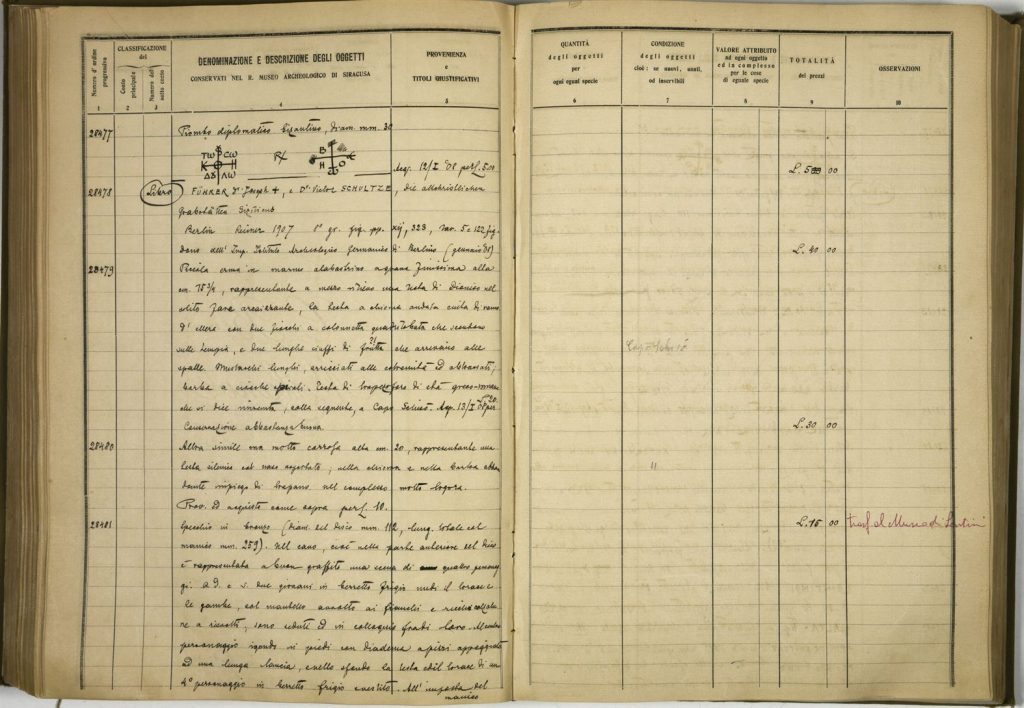 Numero d'ordine progressivo
CLASSIFICAZIONE
del
Conto principale
Numero del sotto conto
DENOMINAZIONE E DESCRIZIONE DEGLI OGGETTI
CONSERVATI NEL R. MUSEO ARCHEOLOGICO DI SIRACUSA
PROVENIENZA
e
TITOLI GIUSTIFICATIVI
QUANTITÀ
degli oggetti
per
ogni egual specie
CONDIZIONE
degli oggetti
cioè: se nuovi, usati,
od inservibili
VALORE ATTRIBUITO
ad ogni oggetto
ed in complesso
per le cose
di eguale specie
TOTALITÀ
dei prezzi
OSSERVAZIONI
1 2 3 4 5 6 7 8 9 10
28477 Piombo diplomatico bizantino, diam. mm. 30
ΤѠ СѠ
Κ Η
ΔΟΥΛѠ
R/
Β
Η Ο
Acq. 12/I 08 per £. 5.00
L. 5 00
28478 Libro FÜHRER Dr. Joseph +, e Dr. Victor SCHULTZE, die altchristlichen
Grabstätten Siziliens
Berlin Reimer 1907 8° gr. fig. pp. xij, 323, tav. 5 e 122 fig.
Dono dell' Imp. Istituto Archeologico Germanico di Berlino (gennaio 08)
L. 40 00
28479 Piccola erma in marmo alabastrino a grana finissima alta
cm. 15 3/4, rappresentante a mezzo rilievo una testa di Dioniso nel
solito arcaizzante, la testa a chioma ondata cinta di
d'ellera con due fiocchi a colonnetta che scendono
sulle tempia, e due lunghi ciuffi di che arrivano alle
spalle. Mustacchi lunghi, arricciati alle estremità ed abbassati,
barba a ciocche spirali. Testa di di età greco-romana
che si dice rinvenuta, colla seguente, a Capo Schisò. Acq. 13/I 08 per £. 20.
Conservazione abbastanza buona
Capo Schisò
L. 30 00
28480 Altra simile ma molto corrosa alta cm. 20, rappresentante una
testa silenica col naso asportato; nella chioma e nella barba abbon
dante impiego di trapano. nel complesso molto logora.
Prov. ed acquisto come sopra per £. 10.
"
28481 Specchio in bronzo (diam. del disco mm. 112, lung. totale col
manico mm. 259). Nel cavo, cioè nella parte anteriore del disco
è rappresentata a buon graffito una scena di quattro personag
gi. A d. e s. due giovani in berretto frigio nudi il torace e
le gambe, col mantello avvolto ai fianchi e
ne a riccetti, sono seduti ed in colloquio fra di loro. Al centro
personaggio ignudo in piedi con diadema a pizzi appoggiato
ad una lunga lancia, e nello sfondo la testa ed il torace di un
4° personaggio in berretto frigio e vestito. All' imposta del
manico
L. 15 00
trasf. al Museo di Lentini